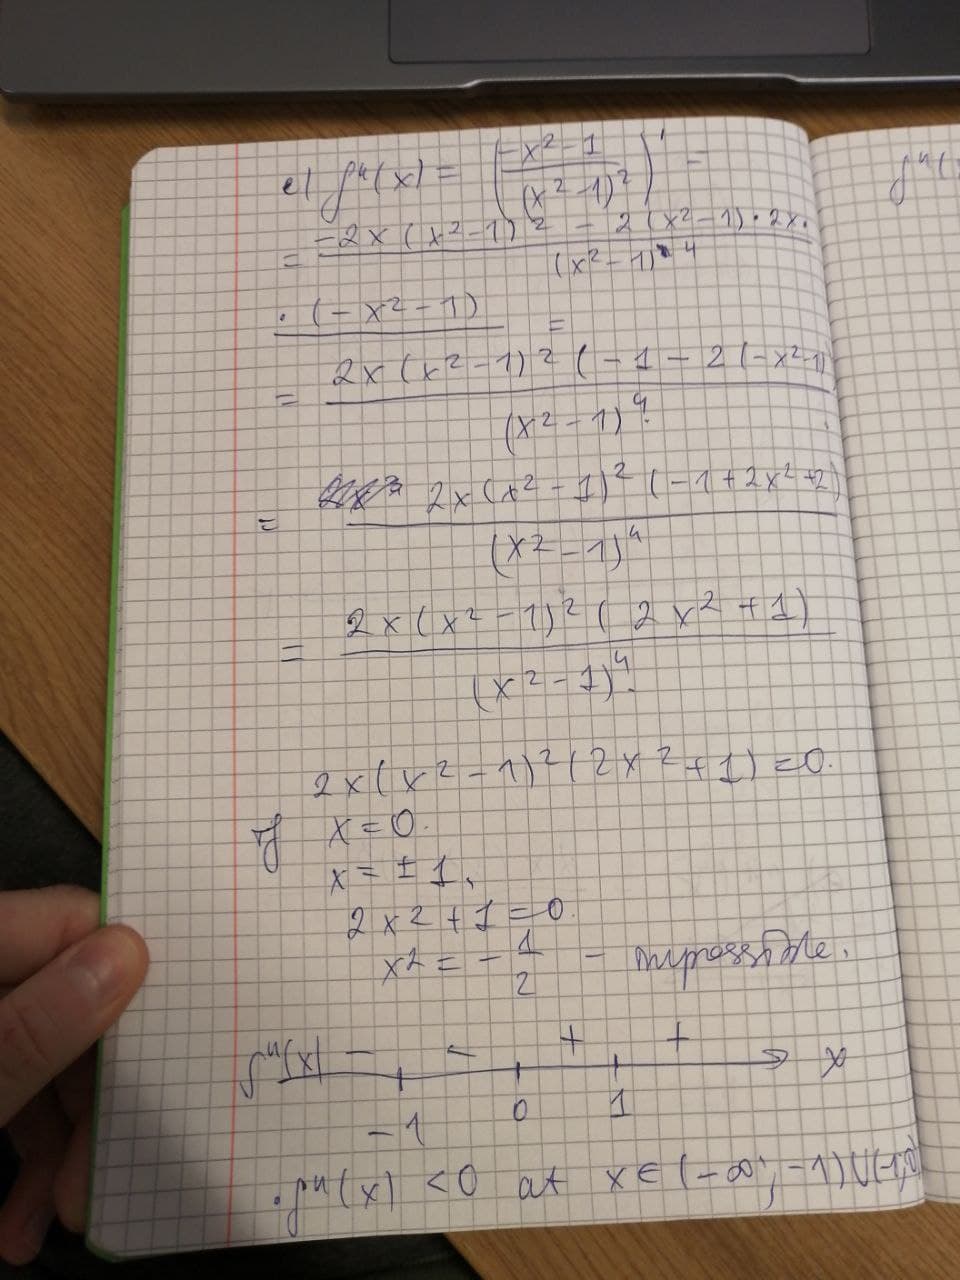 e) f''(x) = ((-x² - 1)/(x² - 1)²)' =
= (-2x(x² - 1)² - 2(x² - 1) · 2x ·)/(x² - 1)⁴
· (-x² - 1) =
= (2x(x² - 1)² (-1 - 2(-x² - 1))/(x² - 1)⁴
= (2x(x² - 1)² (-1 + 2x² + 2))/(x² - 1)⁴
= (2x(x² - 1)² (2x² + 1))/(x² - 1)⁴
2x(x² - 1)² (2x² + 1) = 0.
If x = 0.
x = ± 1,
2x² + 1 = 0.
x² = - 1/2 - impossible.
f''(x) - - + + x
-1 0 1
f''(x) < 0 at x ∈ (-∞; -1) U (-1; 0)
f''(